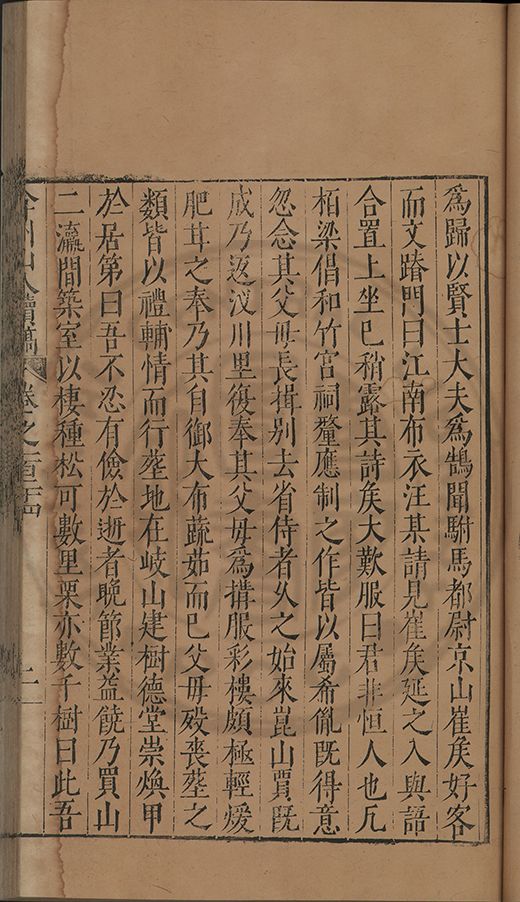 爲歸以賢士大夫爲鵠聞駙馬都尉京山崔矦好客
而文踏門曰江南布衣汪某請見崔矦延之入與語
合置上坐已稍露其詩矦大歎服曰君非恒人也凡
栢梁倡和竹宮祠釐應制之作皆以屬希胤旣得意
忽念其父母長揖别去省侍者久之始來崑山賈旣
成乃返汊川里復奉其父母爲搆服彩樓頗極輕煖
肥甘之奉乃其自御大布蔬茹而已父母歿喪塟之
類皆以禮輔情而行塟地在岐山建樹德堂崇煥甲
於居第曰吾不忍有儉於逝者晚節業益饒乃買山
二瀛間築室以棲種松可數里栗亦數千樹曰此吾
弇州山人續稿 卷之一百二十四